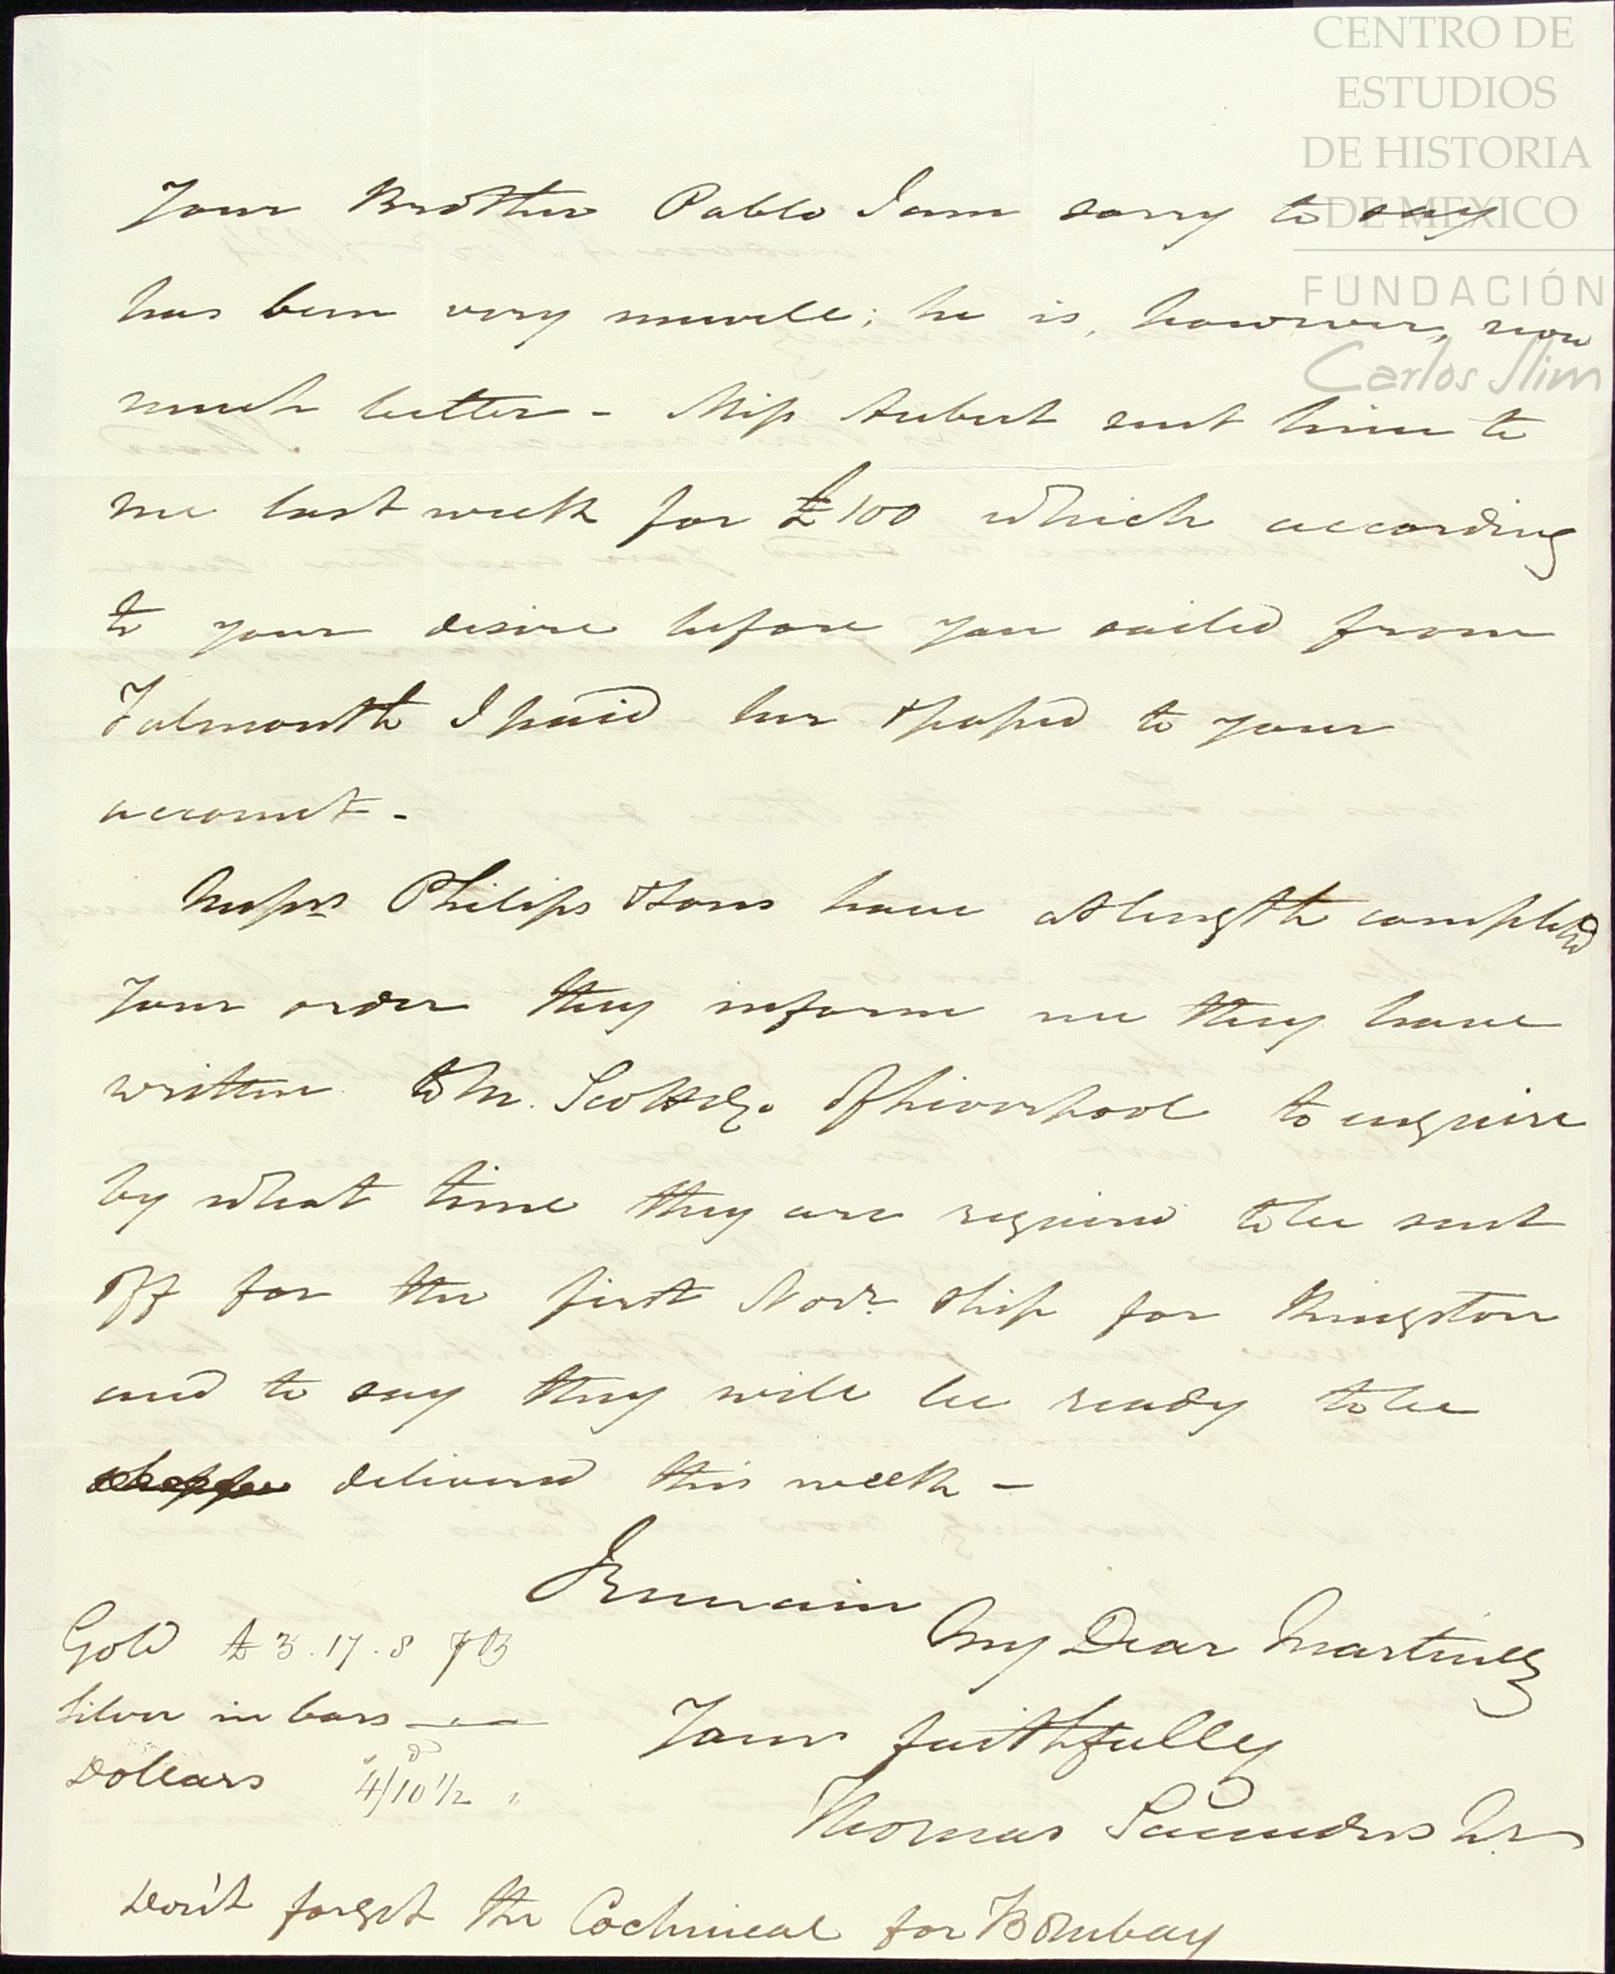 CENTRO DE
ESTUDIOS
DE HISTORIA
DE MEXICO
FUNDACIÓN
Carlos Slim
Your Brother Pablo I am sorry to say
has been very unwell; he is, however, now
much better - Miss Aubert sent him to
me last week for £100 which according
to your desire before you sailed from
Falmouth I paid her & passed to your
account -
Messrs Philips & Sons have at length completed
Your order they inform me they have
written to M. Scott & Co of Liverpool to enquire
by what time they are required to be sent
off for the first Novr. Ship for Kingston
and to say they will be ready to be
delivered this week -
I Remain
My Dear Martinez
Yours faithfully
Thomas Saunders Jr
Gold £3.17.8
Silver in bars
Dollars 4/10 1/2 "
Don't forget the Cochineal for Bombay